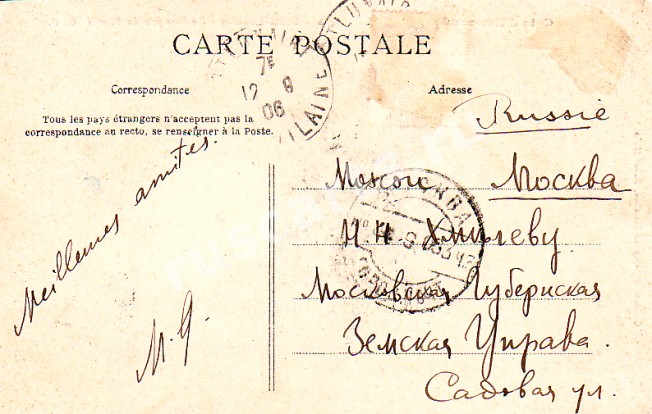 CARTE POSTALE
Correspondance
Adresse
Tous les pays étrangers n'acceptent pas la
correspondance au recto, se renseigner à la Poste.
7E
12 8
06
ILAINE
Meilleures amitiés.
M. G.
Russie
Moscou Москва
МОСКВА
Н. Н. Хмелеву
Московская Губернская
Земская Управа.
Садовая ул.